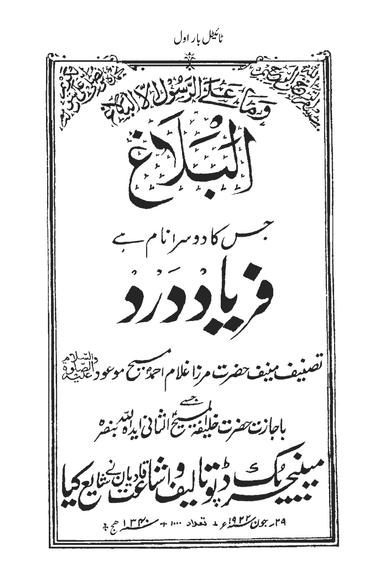 ٹائیٹل بار اول
وَمَا عَلَى الرَّسُولِ إِلَّا الْبَلَاغُ
البَلَاغ
جس کا دوسرا نام ہے
فریادِ دَرد
تصنیف منیف حضرت مرزا غلام احمد مسیح موعود علیہ الصلوٰۃ والسلام
جسے
باجازت حضرت خلیفۃ المسیح الثانی ایدہ اللہ بنصرہ
مینیجر بک ڈپو تالیف و اشاعت قادیان نے شایع کیا
۲۹ رجون ۱۹۲۲ء تعداد ۱۰۰۰ ۱۳۴۰ ھج